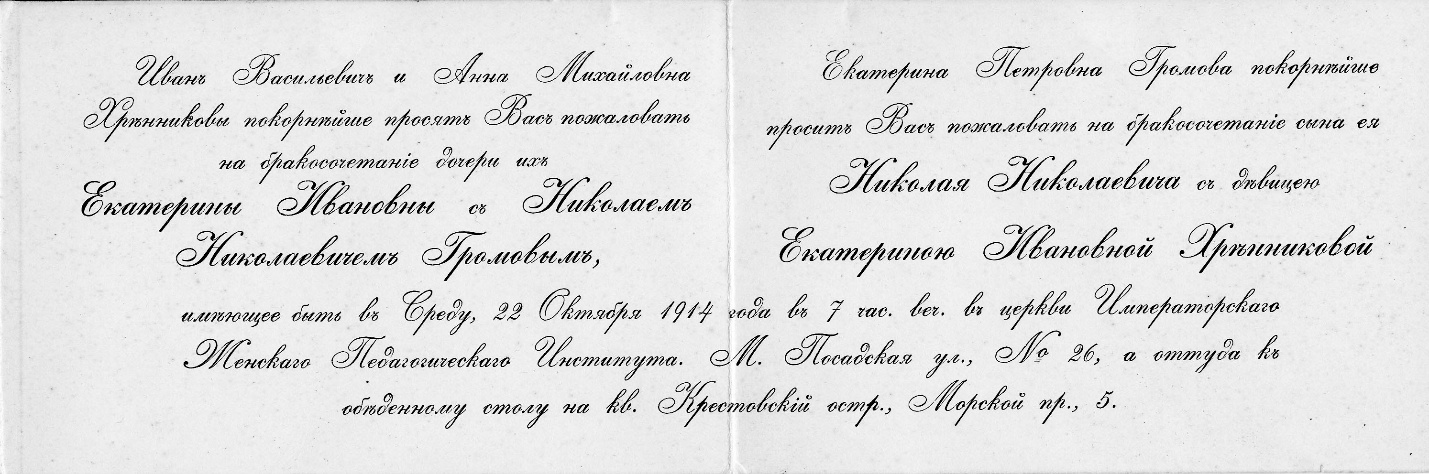 Иванъ Васильевичъ и Анна Михайловна
Хрѣнниковы покорнѣйше просятъ Васъ пожаловать
на бракосочетаніе дочери ихъ
Екатерины Ивановны съ Николаемъ
Николаевичемъ Громовымъ,
Екатерина Петровна Громова покорнѣйше
проситъ Васъ пожаловать на бракосочетаніе сына ея
Николая Николаевича съ дѣвицею
Екатериною Ивановной Хрѣнниковой
имѣющее быть въ Среду, 22 Октября 1914 года въ 7 час. веч. въ церкви Императорскаго
Женскаго Педагогическаго Института. М. Посадская ул., № 26, а оттуда къ
обѣденному столу на кв. Крестовскій остр., Морской пр., 5.